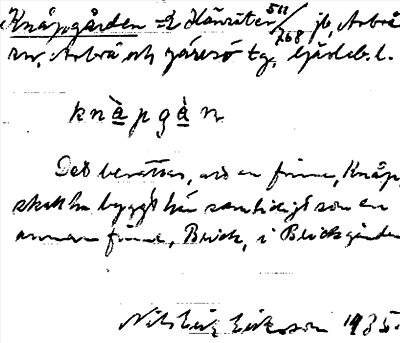 Knåpgården =2 Hänsäter 511/768 jb, Arbrå
sn, Arbrå och Järvsö tg, Gävleb. l.
knàpgàn
Det berättas, att en finne, Knåp,
skall ha byggt här samtidigt som en
annan finne, Blick, i Blicksgården
Nils Erik Eriksson 1935.